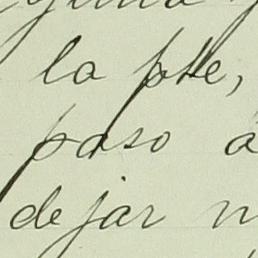 la pte,
paso a
dejar